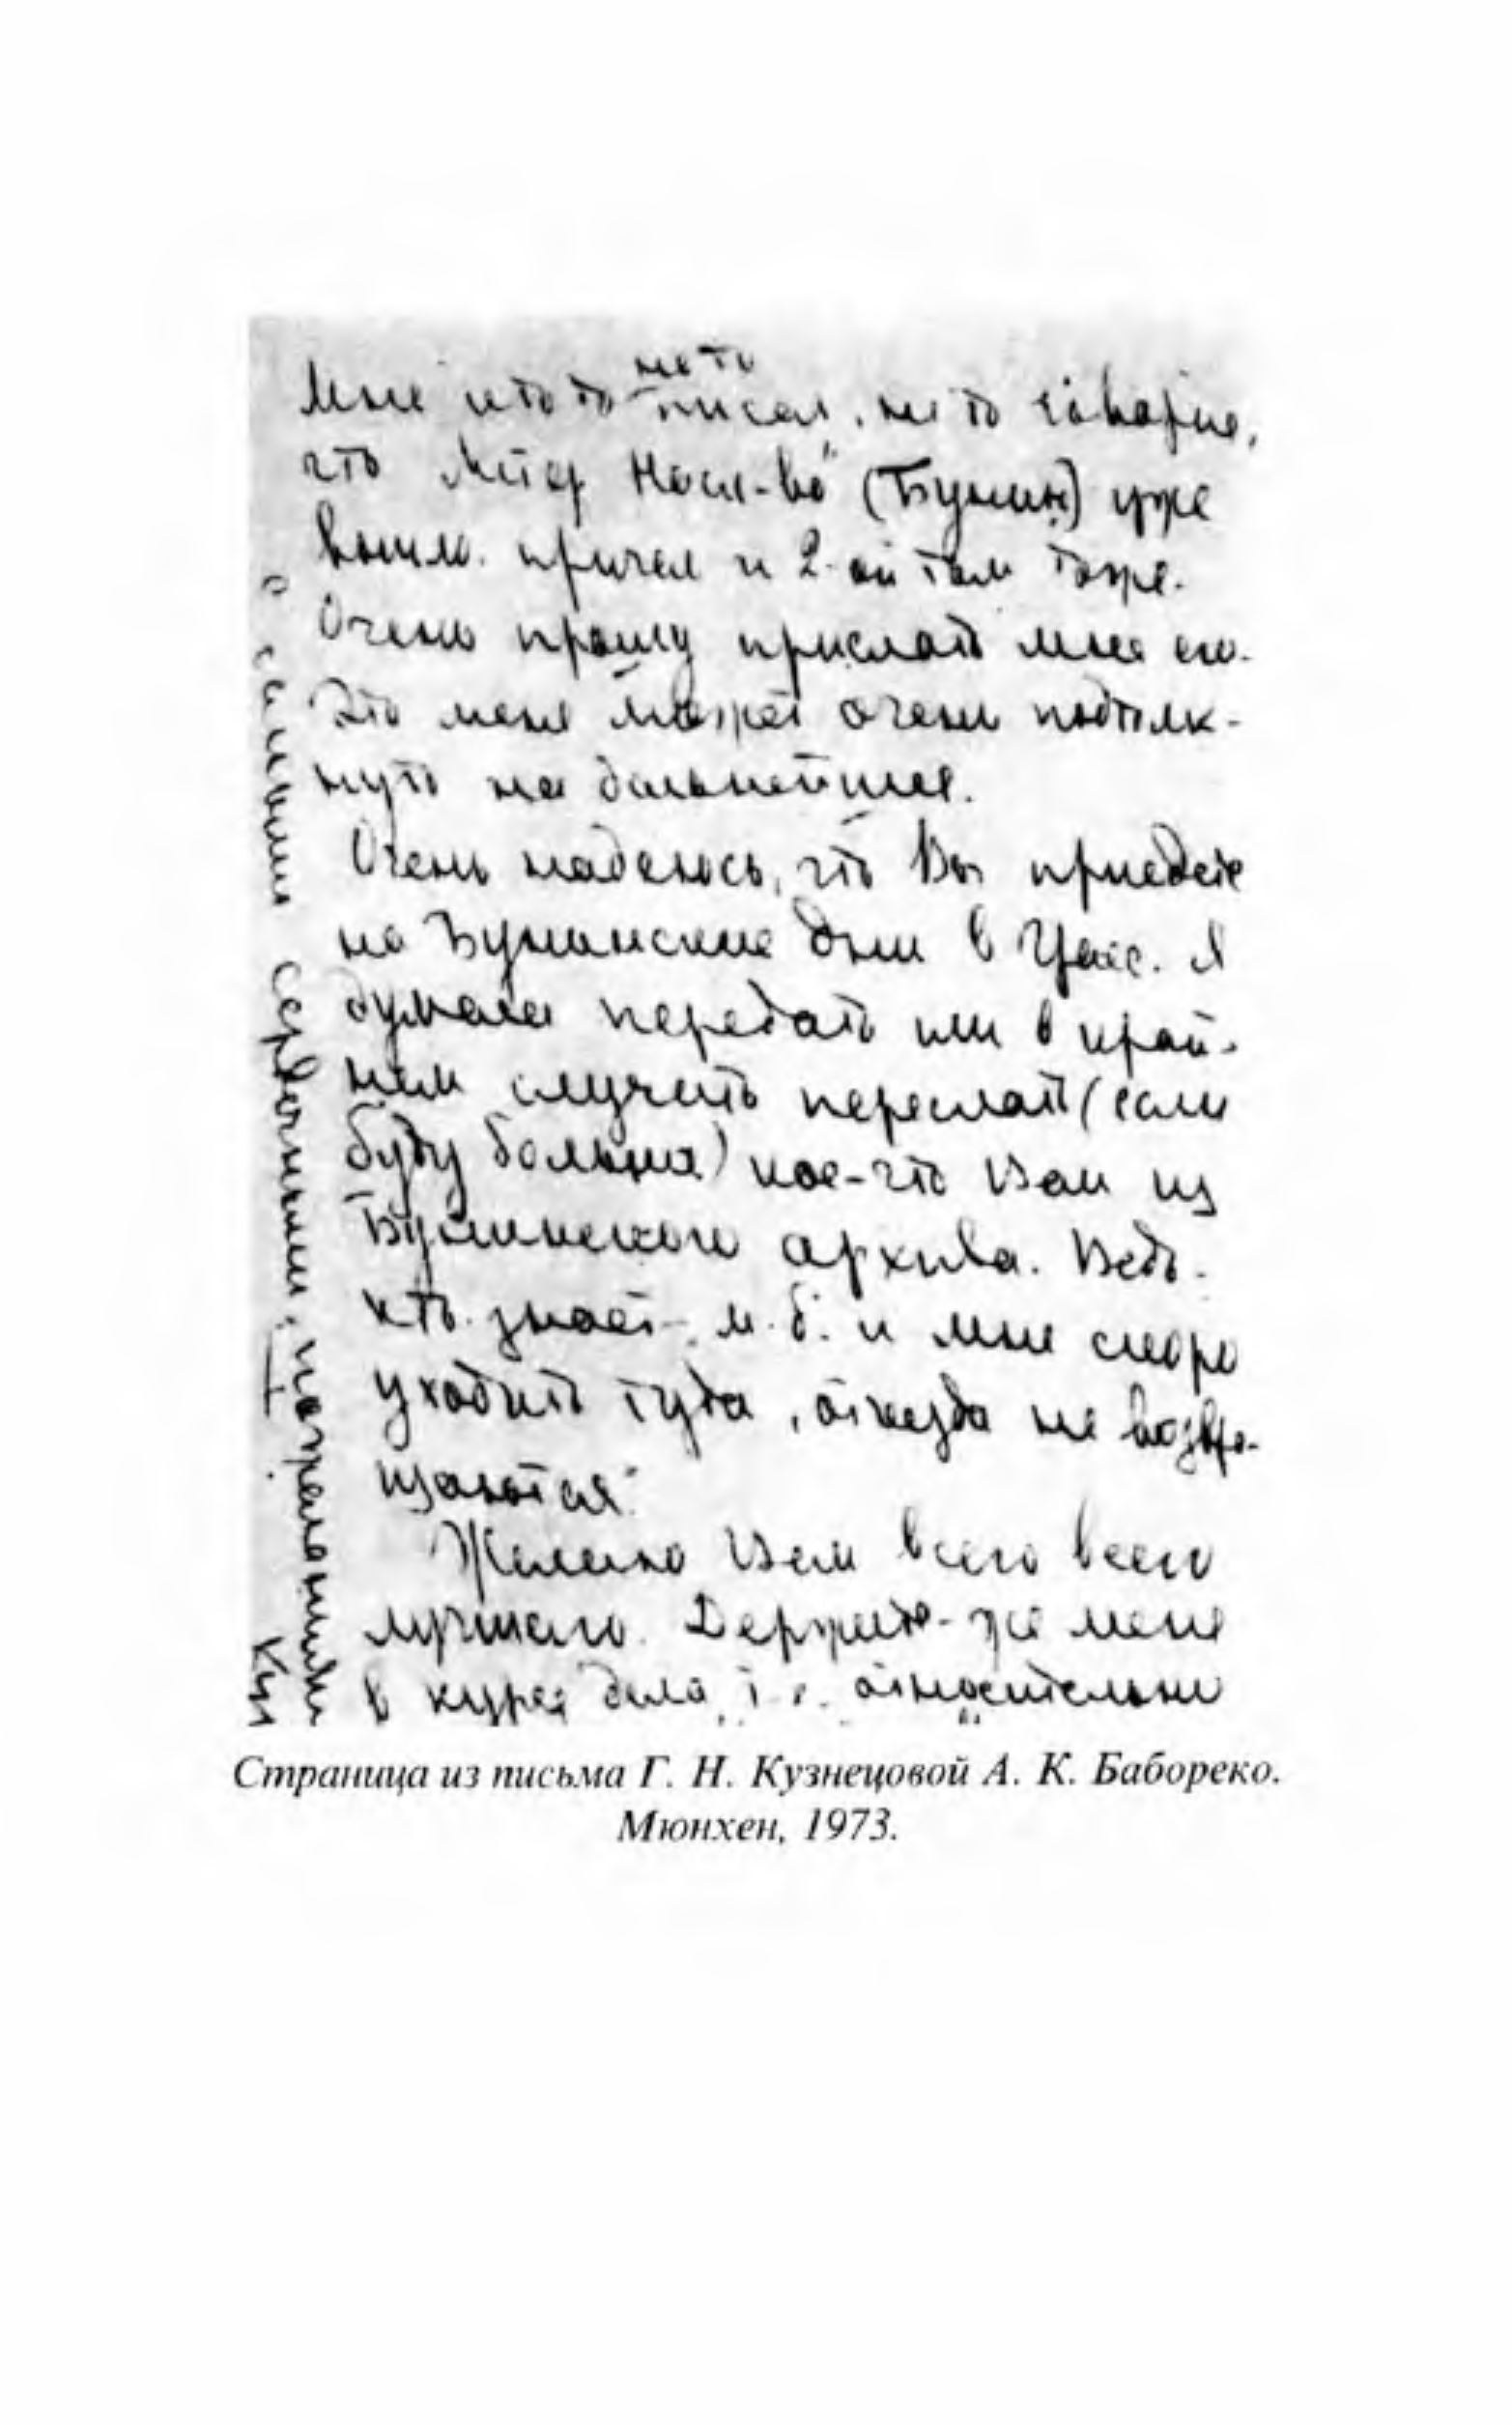 не то
Мне кто то писал, не то говорил,
что "Литер Насл-во" (Бунин) уже
вышло. причем и 2-ой том тоже.
Очень прошу прислать мне его.
Это меня может очень подтолк-
нуть на дальнейшее.
Очень надеюсь, что Вы приедете
на Бунинские дни в
Я
думала передать или в край-
нем случае переслать (если
буду больна) кое-что Вам из
Бунинского архива. Ведь
кто знает, м. б. и мне скоро
уходить туда, откуда не возвра-
щаются.
Желаю Вам всего всего
лучшего. Держите-же меня
в курсе дела, т. е. относительно
с самыми сердечными пожеланиями
Куз
Страница из письма Г. Н. Кузнецовой А. К. Бабореко.
Мюнхен, 1973.